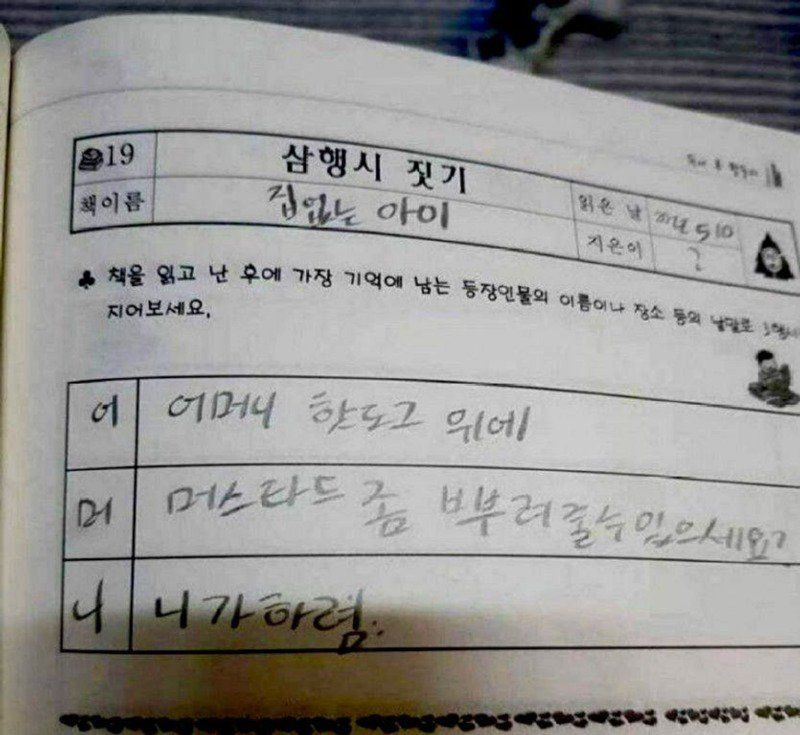 19 삼행시 짓기
책이름 집없는 아이 읽은 날 2014 5 10
지은이 ?
♣ 책을 읽고 난 후에 가장 기억에 남는 등장인물의 이름이나 장소 등의 낱말로 3행시
지어보세요.
어 어머니 핫도그 위에
머 머스타드 좀 ㅂ부려줄수있으세요?
니 니가하렴.